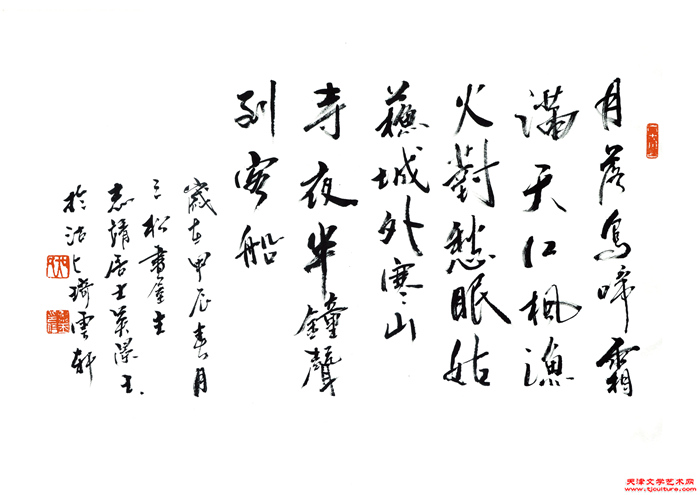 月落烏啼霜
滿天江楓漁
火對愁眠姑
蘇城外寒山
寺夜半鐘聲
到客船
歲在甲辰春月
三松書屋主
志靖居士吳澤玉
於沽上琦雲軒
天津文学艺术网
www.tjculture.com